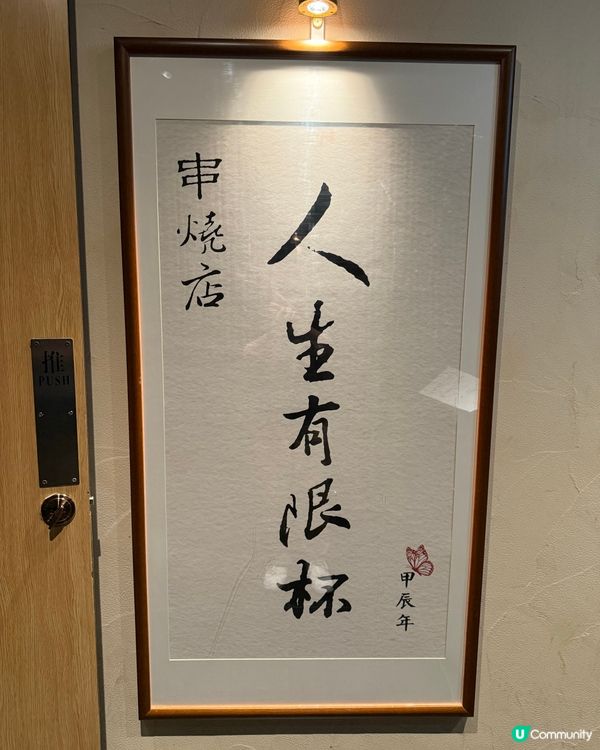 人生有限杯
串燒店
甲辰年
推
PUSH
U Community